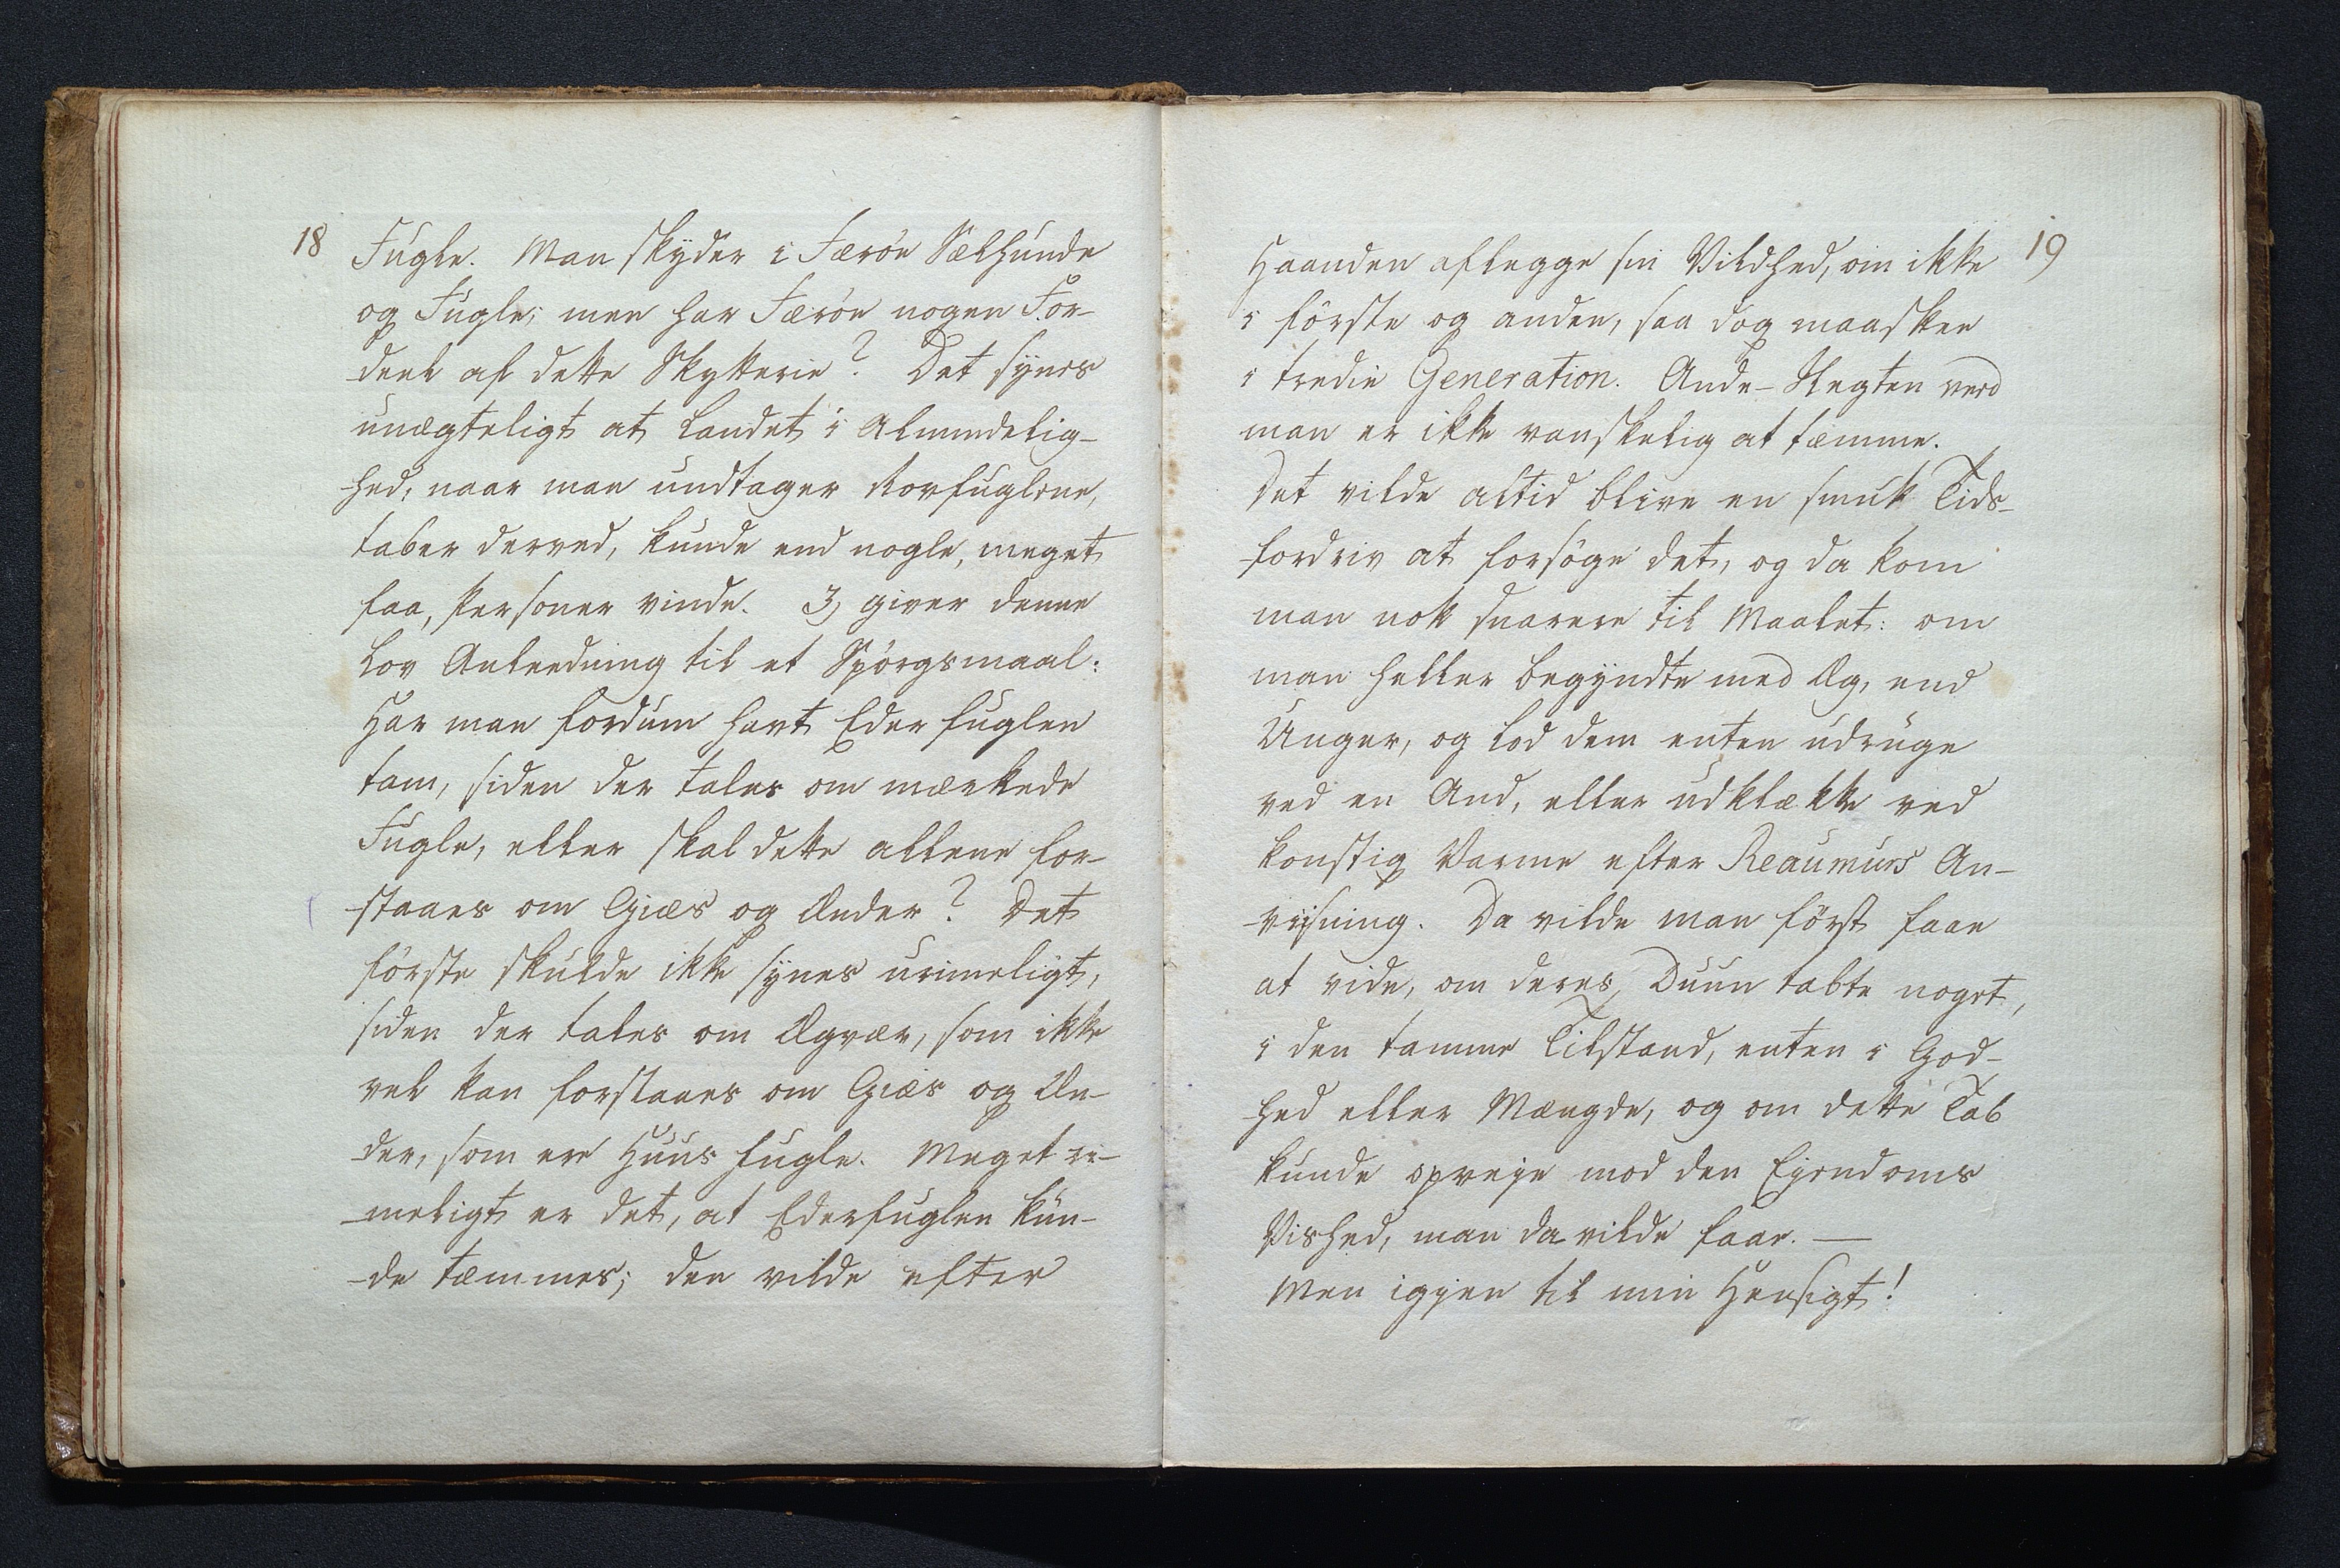 18
Fugle. Man skyder i Færöe Sælhunde
og Fugle; men har Færöe nogen For-
deel af dette Skytterie? Det synes
unægteligt at Landet i Almindelig-
hed, naar man undtager Rovfuglene,
taber derved, kunde end nogle, meget
faa, Personer vinde. 3, giver denne
Lov Anleedning til et Spörgsmaal:
Har man fordum havt Ederfuglen
tam, siden der tales om mærkede
Fugle, eller skal dette allene for-
-staaes om Giæs og Ænder? Det
förste skulde ikke synes urimeligt,
siden der tales om Ægvær, som ikke
vel kan forstaaes om Giæs og Æn-
der, som ere Huus fugle. Meget ri-
-meligt er det, at Ederfuglen kun-
-de tæmmes; den vilde efter
19
Haanden aflegge sin Vildhed, om ikke
i förste og anden, saa dog maaskee
i tredie Generation. Ande-Slegten veed
man er ikke vanskelig at tæmme.
Det vilde altid blive en smuk Tids-
fordriv at forsöge det, og da kom
man nok snarere til Maalet: om
man heller begyndte med Æg, end
Unger, og lod dem enten udruge
ved en And, eller udklække ved
konstig Varme efter Reaumurs An-
-viisning. Da vilde man först faae
at vide, om deres Duun tabte noget,
i den tamme Tilstand, enten i God-
hed eller Mængde, og om dette Tab
kunde opveje mod den Ejendoms
Vished, man da vilde faae. —
Men igjen til min Hensigt!